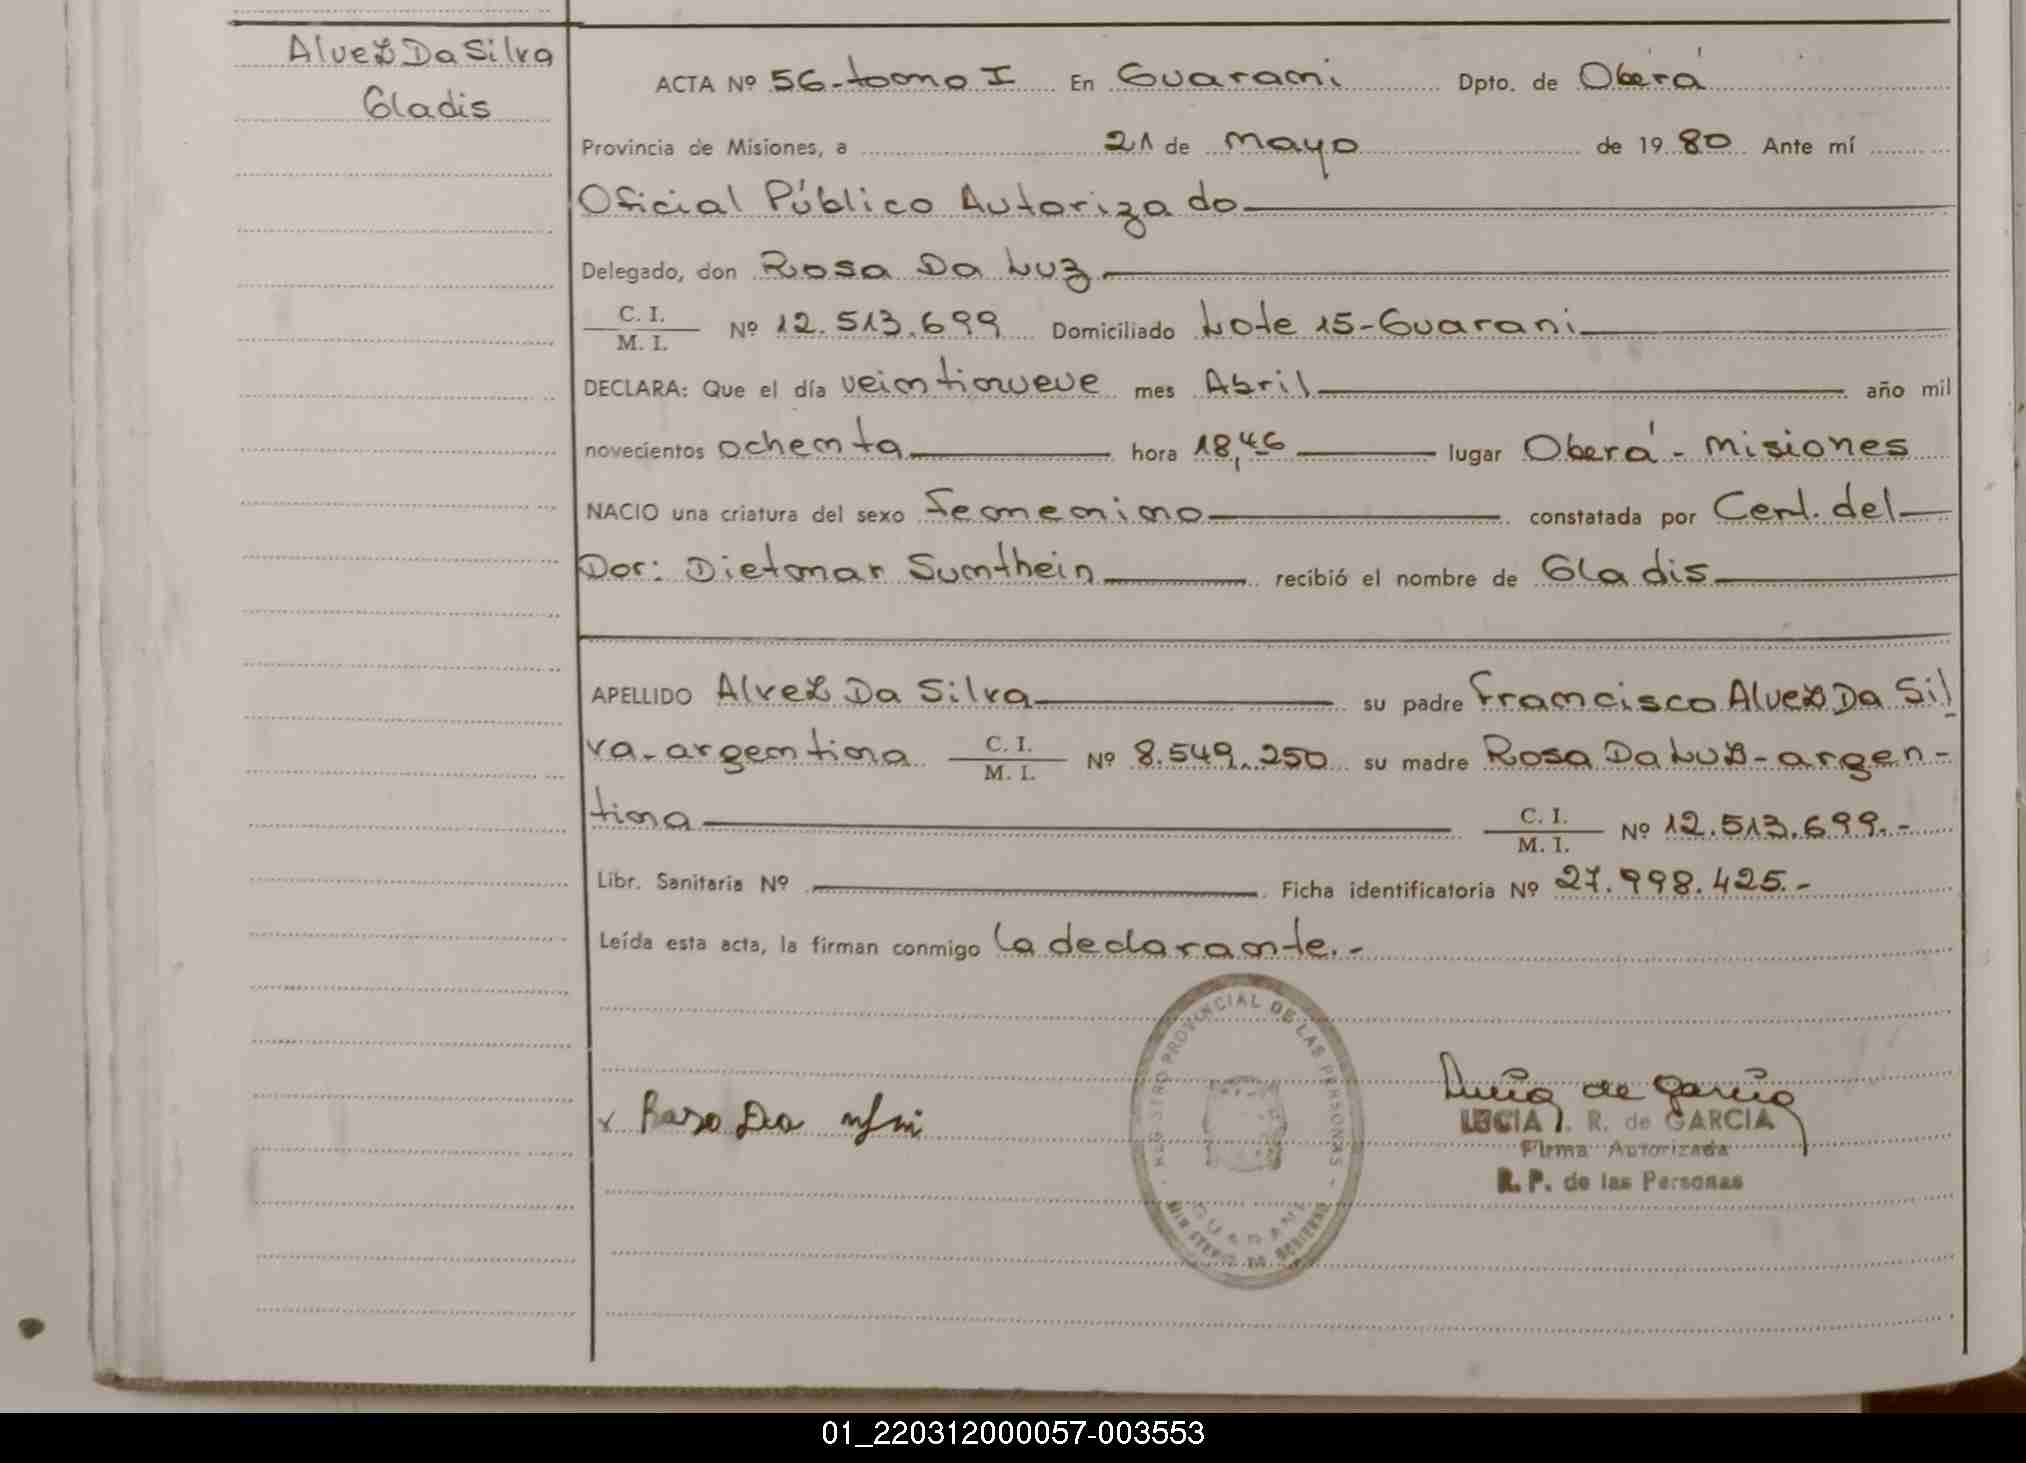 Alvez Da Silva
Gladis
ACTA Nº 56-tomo I En Guarani Dpto. de Oberá
Provincia de Misiones, a 21 de mayo de 1980 Ante mí
Oficial Público Autorizado
Delegado, don Rosa Da Luz
C. I.
M. I.
Nº 12.513.699 Domiciliado Lote 15-Guarani
DECLARA: Que el día veintinueve mes Abril año mil
novecientos ochenta hora 18,46 lugar Oberá - Misiones
NACIO una criatura del sexo femenino constatada por Cert. del
Dor: Dietmar Sumthein recibió el nombre de Gladis
APELLIDO Alvez Da Silva su padre Francisco Alvez Da Sil
va-argentina C. I. M. I. Nº 8.549.250 su madre Rosa Da Luz-argen-
tina C. I. M. I. Nº 12.513.699.-
Libr. Sanitaria Nº Ficha identificatoria Nº 27.998.425.-
Leída esta acta, la firman conmigo la declarante.-
REGISTRO PROVINCIAL DE LAS PERSONAS
GUARANI
MINISTERIO DE GOBIERNO
Lucía de García
LUCIA I. R. de GARCIA
Firma Autorizada
R. P. de las Personas
01_220312000057-003553